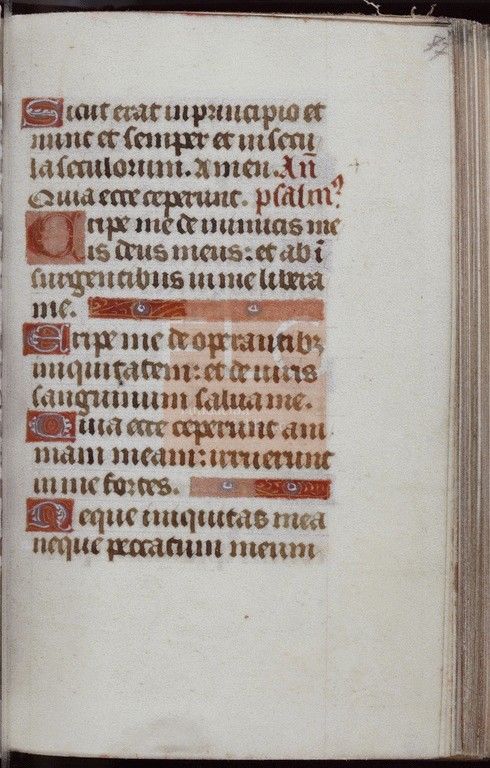 Sicut erat in principio et
nunc et semper et in secu
la seculorum. Amen. Añ
Quia ecce ceperunt. psalm̃?
Eripe me de inimicis me
is deus meus: et ab ī
surgentibus in me libera
me.
Eripe me de operantibꝫ
iniquitatem: et de viris
sanguinum salua me.
Quia ecce ceperunt ani
mam meam: irruerunt
in me fortes.
Neque iniquitas mea
neque peccatum meum